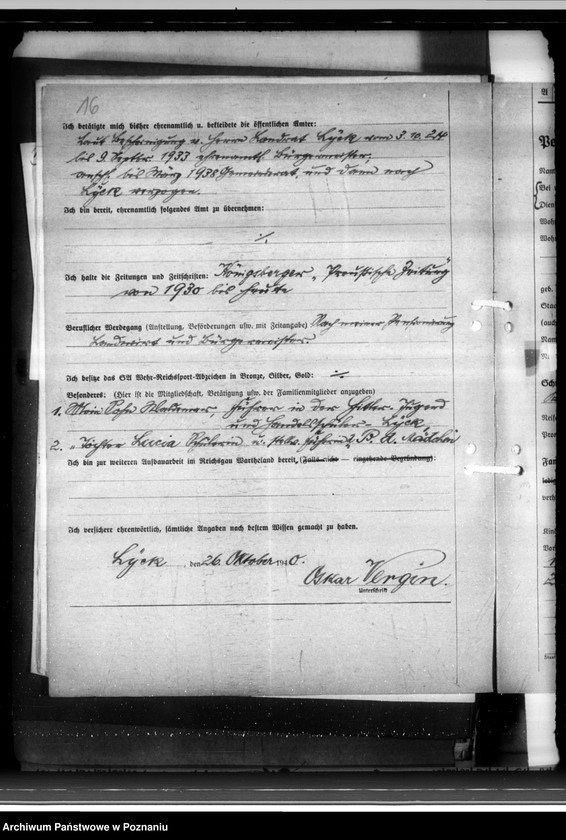 16
Ich betätigte mich bisher ehrenamtlich u. bekleidete die öffentlichen Ämter:
Laut Bescheinigung v. Herrn Landrat Lyck vom 3. 10. 24
bis 9. Septbr. 1933 ehrenamtl. Bürgermeister,
anschl. bis März 1938 Gemeinderat, und dann nach
Lyck verzogen.
Ich bin bereit, ehrenamtlich folgendes Amt zu übernehmen:
./.
Ich halte die Zeitungen und Zeitschriften: Königsberger „Preußische Zeitung"
von 1930 bis heute
Beruflicher Werdegang (Anstellung, Beförderungen usw. mit Zeitangabe) Nach meiner Pensionierung
Landwirt und Bürgermeister
Ich besitze das SA Wehr-Reichssport-Abzeichen in Bronze, Silber, Gold: ./.
Besonderes: (Hier ist die Mitgliedschaft, Betätigung usw. der Familienmitglieder anzugeben)
1. Mein Sohn Waldemar, Führer in der Hitler-Jugend
und Handelsschüler - Lyck,
2. " Tochter Lucia Schülerin u. stellv. Führerin
Ich bin zur weiteren Aufbauarbeit im Reichsgau Wartheland bereit, (Falls nicht — eingehende Begründung):
Ich versichere ehrenwörtlich, sämtliche Angaben nach bestem Wissen gemacht zu haben.
Lyck, den 26. Oktober 1940.
Oskar Vergin.
Unterschrift
A
Pe
Nam
Bei
Dien
Woh
Woh
geb.
Staa
(auch
Nam
N.
Sch
Fam
Kind
Vor
1
2
Archiwum Państwowe w Poznaniu